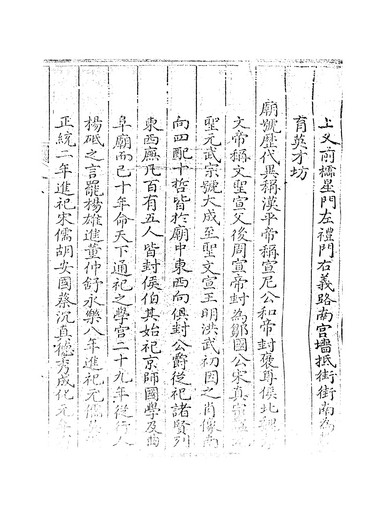 上又前櫺星門左禮門右義路南宫墻抵街街南為
育英才坊
廟號歷代異稱漢平帝稱宣尼公和帝封褒尊侯北魏
文帝稱文聖宣父後周宣帝封為鄒國公宋真宗
聖元武宗號大成至聖文宣王明洪武初因之肖像南
向四配十哲皆於廟中東西向俱封公爵從祀諸賢列
東西廡凡百有五人皆封侯伯其始祀京師國學及曲
阜廟而已十年命天下通祀之學宫二十九年從行人
楊砥之言罷楊雄進董仲舒永樂八年進祀元儒
正統二年進祀宋儒胡安國蔡沉真德秀成化元